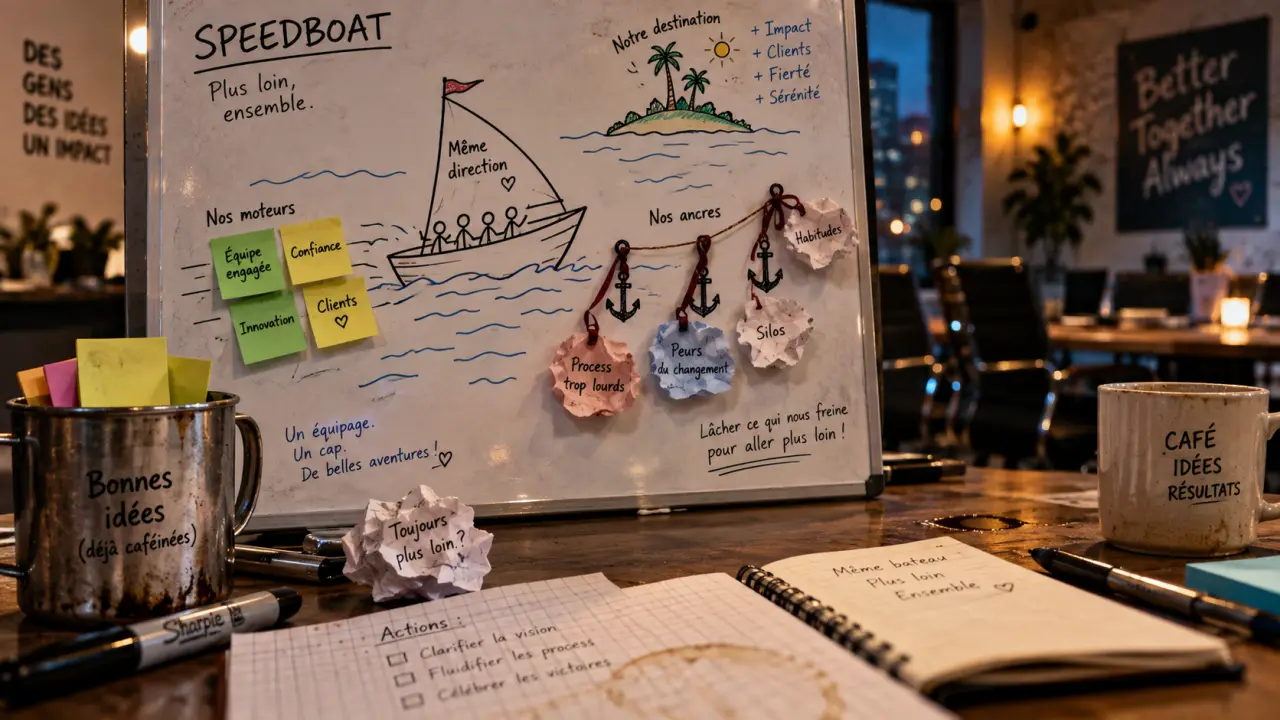 DES
GENS
DES IDÉES
UN IMPACT
SPEEDBOAT
Plus loin,
ensemble.
Même
direction
Notre destination
+ Impact
+ Clients
+ Fierté
+ Sérénité
Better
Together
Always
Nos moteurs
Équipe
engagée
Confiance
Innovation
Clients
Nos ancres
Habitudes
Silos
Peurs
du changement
Process
trop lourds
Un équipage.
Un cap.
De belles aventures !
Lâcher ce qui nous freine
pour aller plus loin !
Bonnes
idées
(déjà caféinées)
Toujours
plus loin.?
CAFÉ
IDÉES
RÉSULTATS
Sharpie
Actions :
Clarifier la vision
Fluidifier les process
Célébrer les victoires
Même bateau
Plus loin
Ensemble